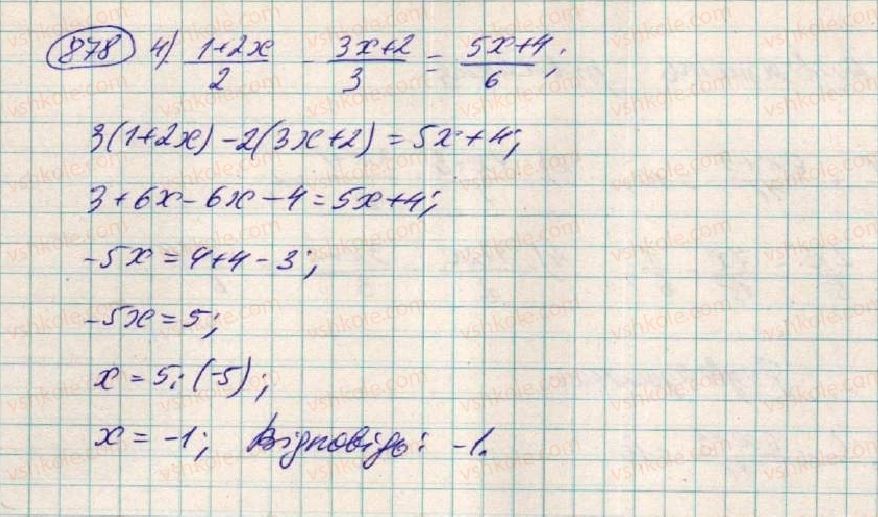 878 4) (1+2x)/2 - (3x+2)/3 = (5x+4)/6;
3(1+2x) -2(3x+2) = 5x+4;
3+6x-6x-4=5x+4;
-5x = 4+4-3;
-5x = 5;
x = 5:(-5);
x = -1; Відповідь: -1.